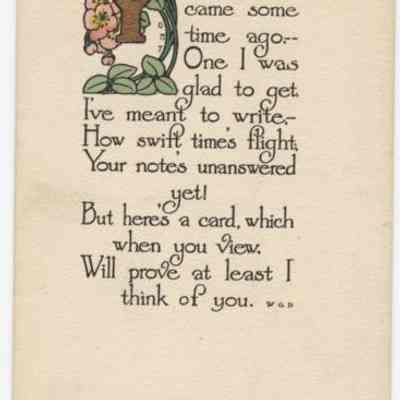 came some
time ago:--
One I was
glad to get.
I've meant to write,-
How swift time's flight,
Your note's unanswered
yet!
But here's a card, which
when you view,
Will prove at least I
think of you. W G D